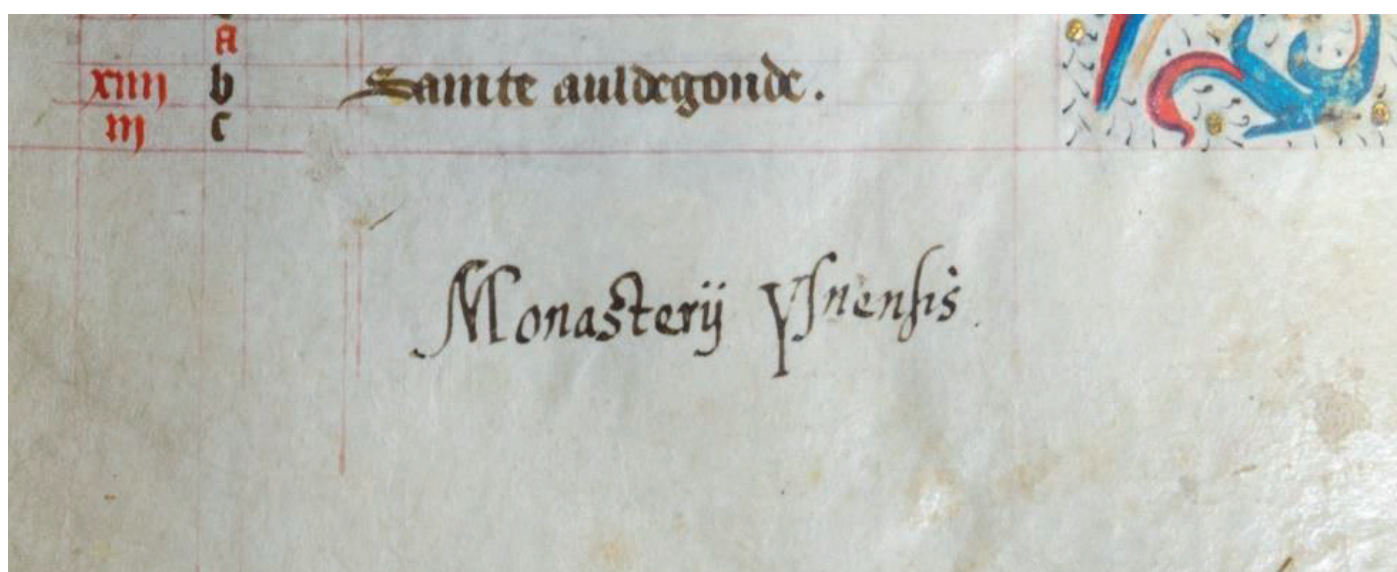 A
xiiij b Sainte auldegonde.
iij c
Monasterij Ysnensis